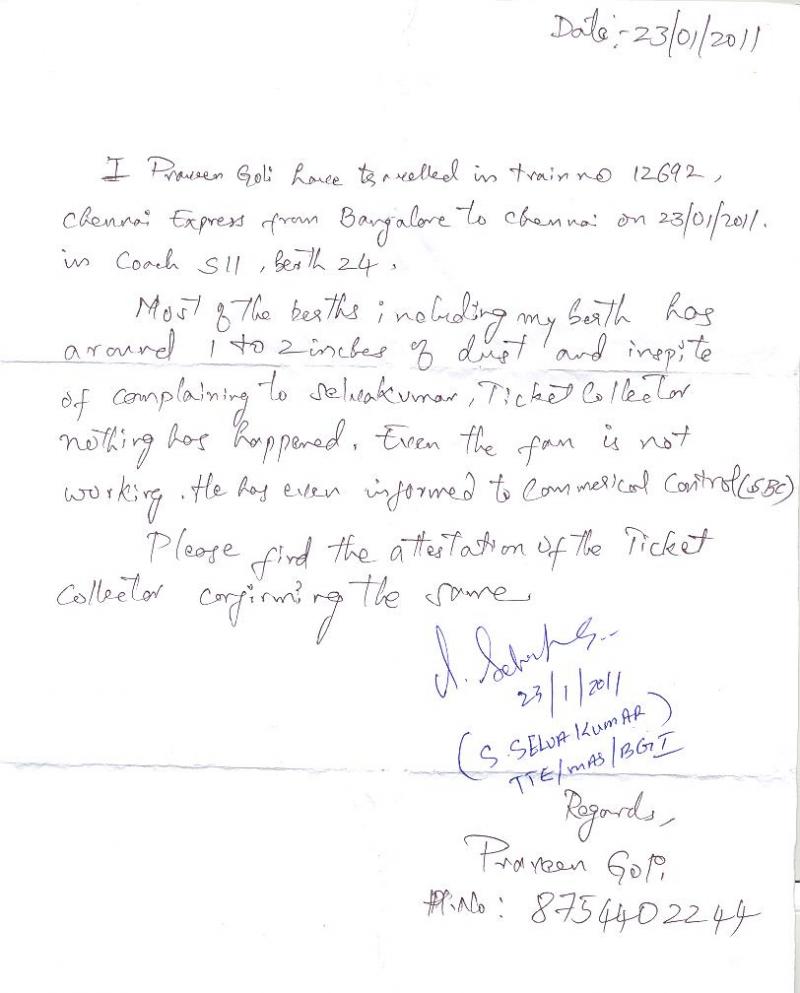 Date:- 23/01/2011
I Praveen Goli have travelled in train no 12692,
Chennai Express from Bangalore to Chennai on 23/01/2011.
in Coach S11, berth 24.
Most of the berths including my berth has
around 1 to 2 inches of dust and inspite
of complaining to Selvakumar, Ticket Collector
nothing has happened. Even the fan is not
working. He has even informed to Commerical Control(SBC)
Please find the attestation of the Ticket
Collector confirming the same.
23/1/2011
(S. SELVA KUMAR)
TTE/MAS/BG I
Regards,
Praveen Goli
Ph.No: 8754402244